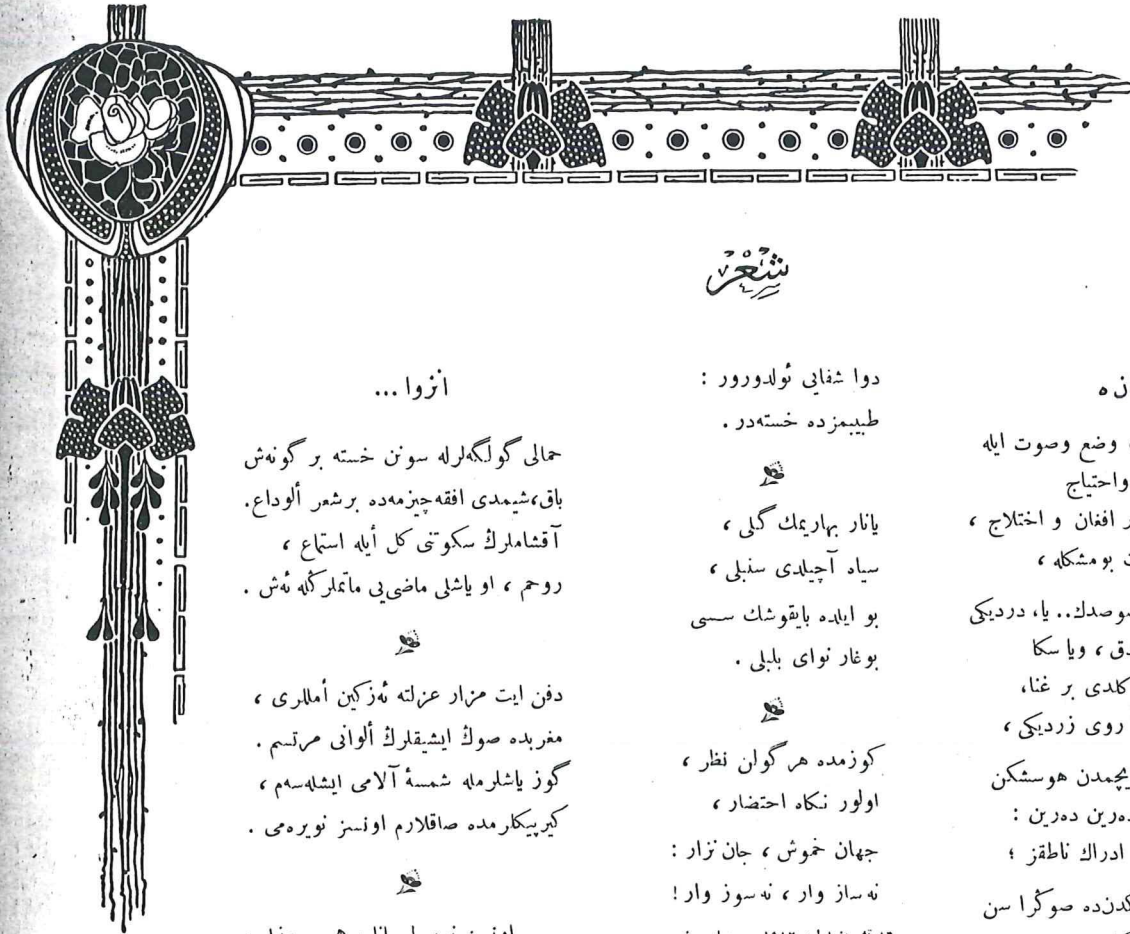 شعر
زه
وضع وصوت ايله
واحتياج
ر افغان و اختلاج ،
بو مشكله ،
صوصدك.. يا، درديكى
دق ، ويا سكا
كلدى بر غنا،
روى زرديكى ،
يچمدن هوسشكن
دهرين دهرين :
ادراك ناطقز ؛
كدنده صوڭرا سن
دوا شفايى ئولدورور :
طبيبمزده خسته‌در .
يانار بهاريمك گلى ،
سياه آچيلدى سنبلى ،
بو ايلده بايقوشك سسى
بوغار نواى بلبلى .
كوزمده هر گوان نظر ،
اولور نكاه احتضار ،
جهان خموش ، جان نزار :
نه ساز وار ، نه سوز وار !
انزوا ...
حمالى گولگه‌لرله سونن خسته بر گونه‌ش
باق،شيمدى افقه چيزمه‌ده بر شعر ألوداع.
آقشاملرڭ سكوتنى كل أيله استماع ،
روحم ، او ياشلى ماضى‌يى ماتملرڭله ئه‌ش .
دفن ايت مزار عزلته ئه‌زكين أمللرى ،
مغربده صوڭ ايشيقلرڭ ألوانى مرتسم .
گوز ياشلرمله شمسهٔ آلامى ايشله‌سه‌م ،
كيرپيكلرمده صاقلارم اونسز نويره‌مى .